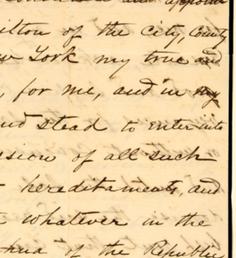 and appoint
ilton of the city, County
w York my true and
, for me, and in my
nd stead to enter into
ssion of all such
hereditaments, and
whatever in the
hua of the Republic